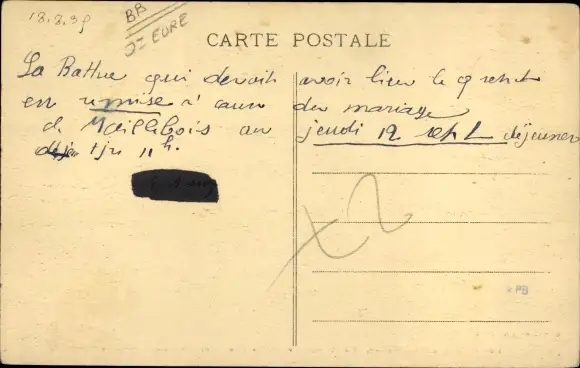 18.8.39
BB
27 EURE
CARTE POSTALE
La Battue qui devait avoir lieu le 9 sept
est remise à cause du mariage
de Maillebois au jeudi 12 sept déjeuner
11 h.
x2
PB